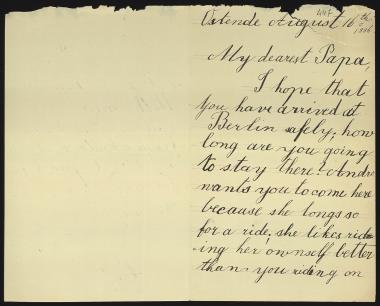 Ostende August 16th
1886
My dearest Papa,
I hope that
you have arrived at
Berlin safely; how
long are you going
to stay there? Andre
wants you to come here
because she longs so
for a ride; she likes rid=
ing her ownself better
than you riding on